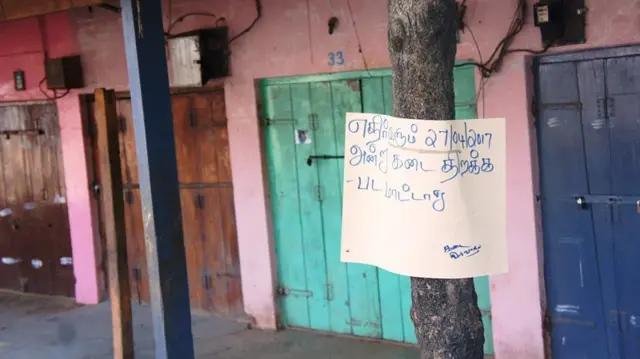 33
எதிர்வரும் 27/04/2017
அன்று கடை திறக்க
-பட மாட்டாது